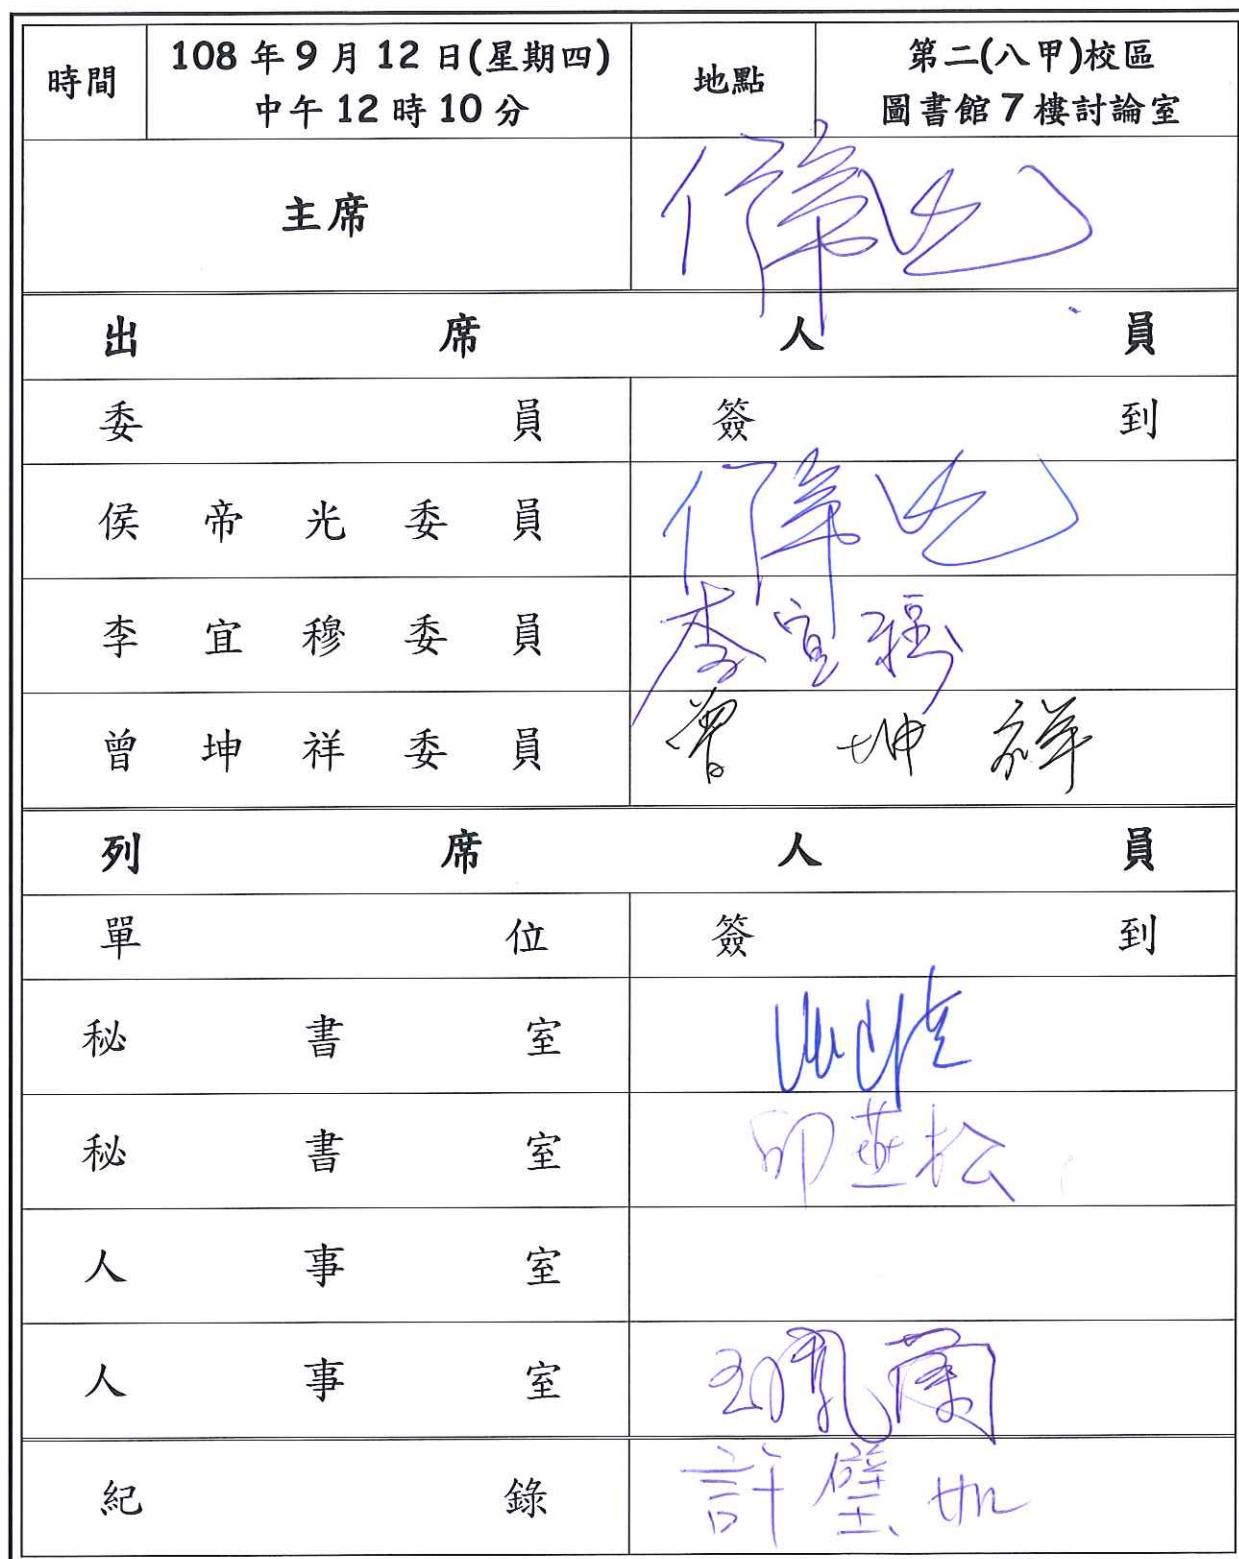 時間
108年9月12日(星期四)
中午12時10分
地點
第二(八甲)校區
圖書館7樓討論室
主席
侯帝光
出席人員
委員
簽到
侯帝光委員
侯帝光
李宜穆委員
李宜穆
曾坤祥委員
曾坤祥
列席人員
單位
簽到
秘書室
秘書室
邱燕松
人事室
人事室
紀錄
許璧如